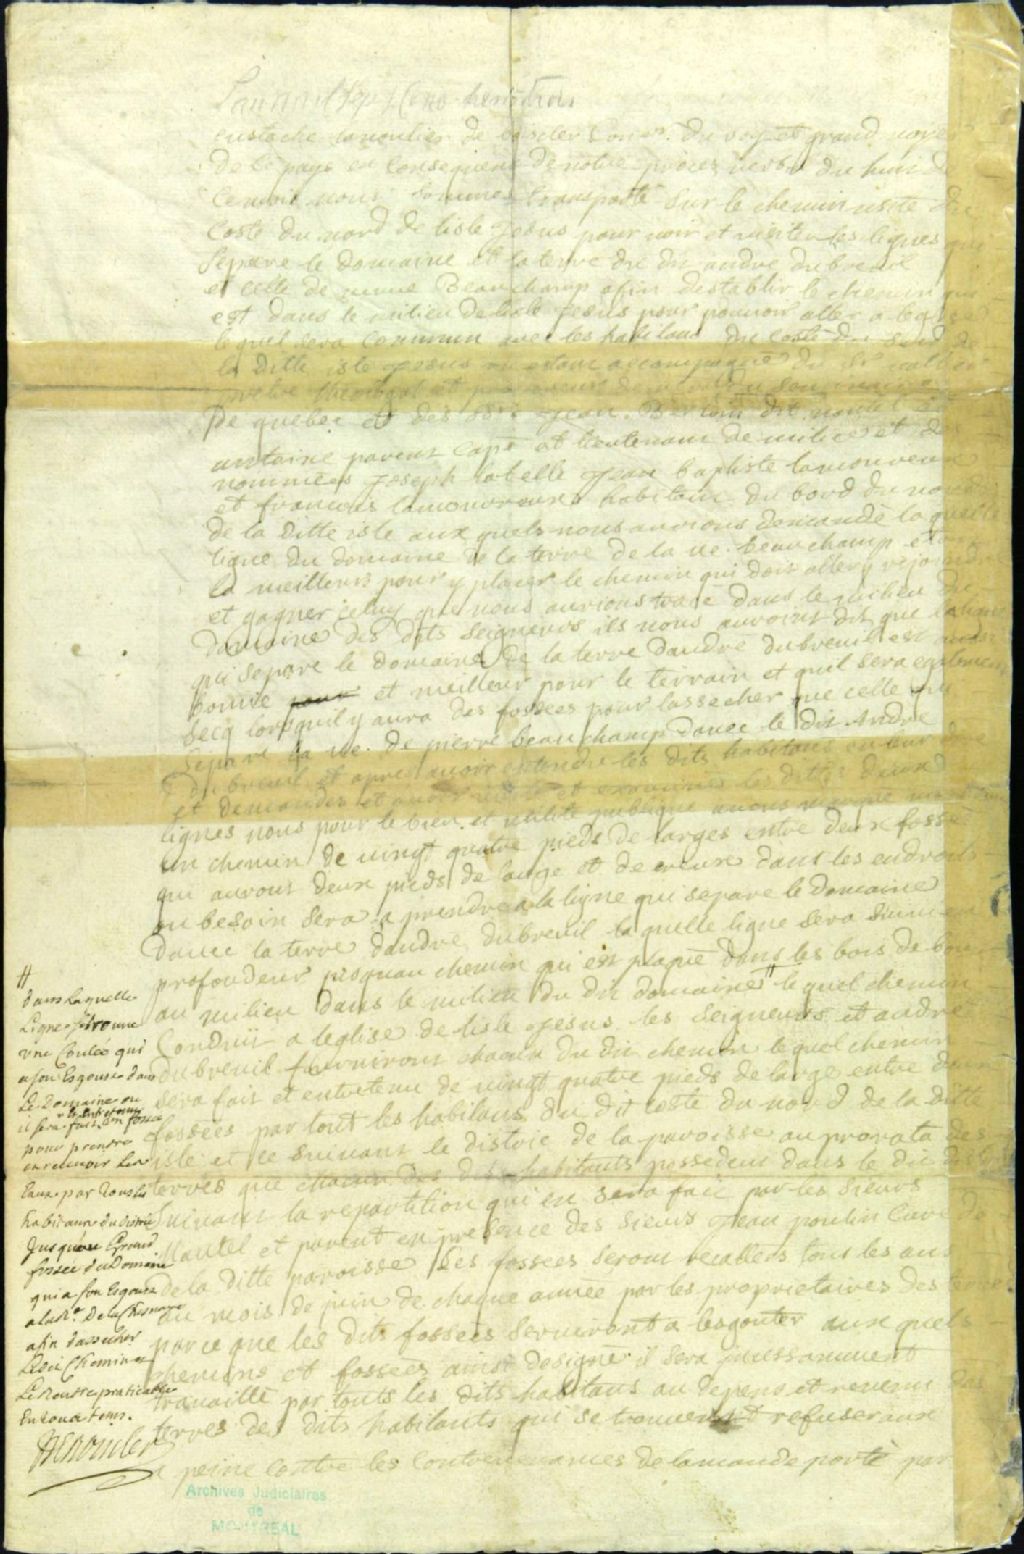 Lan mil sept cens trente trois
Eustache lanoulier de boiscler Coner. du roy et grand voyer
de ce pays en Consequence de notre proces verbal du huit de
Ce mois nous sommes transporté sur le chemin usité du
Coste du nord de lisle Jesus pour voir et visiter les lignes qui
Separe le domaine et la terre du dit andré dubreuil
et celle de Beauchamp afin destablir le chemin qui
est dans le milieu de lisle Jesus pour pouvoir aller a leglise
lequel sera Commun avec les habitans du Costé du Sud de
la ditte isle Jesus estant accompagné du Sr
pretre Theologal et procureur du Seminaire
De quebec et des Srs Jean dit nantel et
antoine parent Capne et lieutenant de milice et des
nommées Joseph labelle Jean baptiste lamoureux
et francois lamoureux habitans du bord du nord
de la ditte isle aux quels nous aurions demandé la quelle
ligne du domaine de la terre de la ve. beauchamp
la meilleure pour y placer le chemin qui doit aller y rejoindre
et gagner celuy que nous aurions tracé dans le milieu du
Domaine des dits Seigneurs ils nous auroient dit que la ligne
qui separe le domaine de la terre dandré dubreuil est aussi
bonne pour et meilleur pour le terrain et quil sera egalement
Secq lorsquil y aura des fossées pour lassecher que celle qui
Separe la ve. de pierre beauchamp davec le dit André
Dubreuil et apres avoir entendu les dits habitans en leur
et demandes et avoir examiné les dittes deux
lignes nous pour le bien et utilité publique avons marqué
un chemin de vingt quatre pieds de larges entre deux fossé
qui auront deux pieds de large et de creux dans les endroits
ou besoin sera a prendre a la ligne qui separe le domaine
Davec la terre dandré dubreuil laquelle ligne sera suivie en
profondeur jusquau chemin qui est plaqué dans les bois de
au milieu dans le milieu du dit domaine # lequel chemin
Conduit a leglise de lisle Jesus les Seigneurs et andré
dubreuil fourniront chacun du dit chemin lequel chemin
sera fait et entretenu de vingt quatre pieds de large entre deux
fossées par tout les habitans du dit coste du nord de la ditte
isle et ce suivant le distric de la paroisse au prorata des
terres que chacun des dits habitants possedent dans le dit
Suivant la repartition qui en sera fait par les sieurs
Nantel et parent en presence des sieurs Jean poulin Curé de
de la ditte paroisse les fossées seront recallées tous les ans
au mois de juin de chaque année par les proprietaires des terres
parce que les dits fossées serviront a lesgouter aux quels
chemins et fossées ainsi designé il sera puissamment
travaillé par touts les dits habitans au depens et revenu des
terres des dits habitants qui se trouveront refuser aux
a peine contre les Contrevenances de lamande porté par
#
dans laquelle
Ligne se trouve
une Coulée qui
a son Esgoust dans
Le Domaine ou
il sera fait un fossé
pour prendre
recevoir Les
Eaux par tous les
habitans du distric
Jusquau Grand
fossée du Domaine
qui a son Esgoust
a la Re. De la Chesnaye
afin d'assecher
Ledit Chemin et
Le Rendre praticable
En tout tems.
Lanoulier
Archives Judiciaires
de
MONTREAL